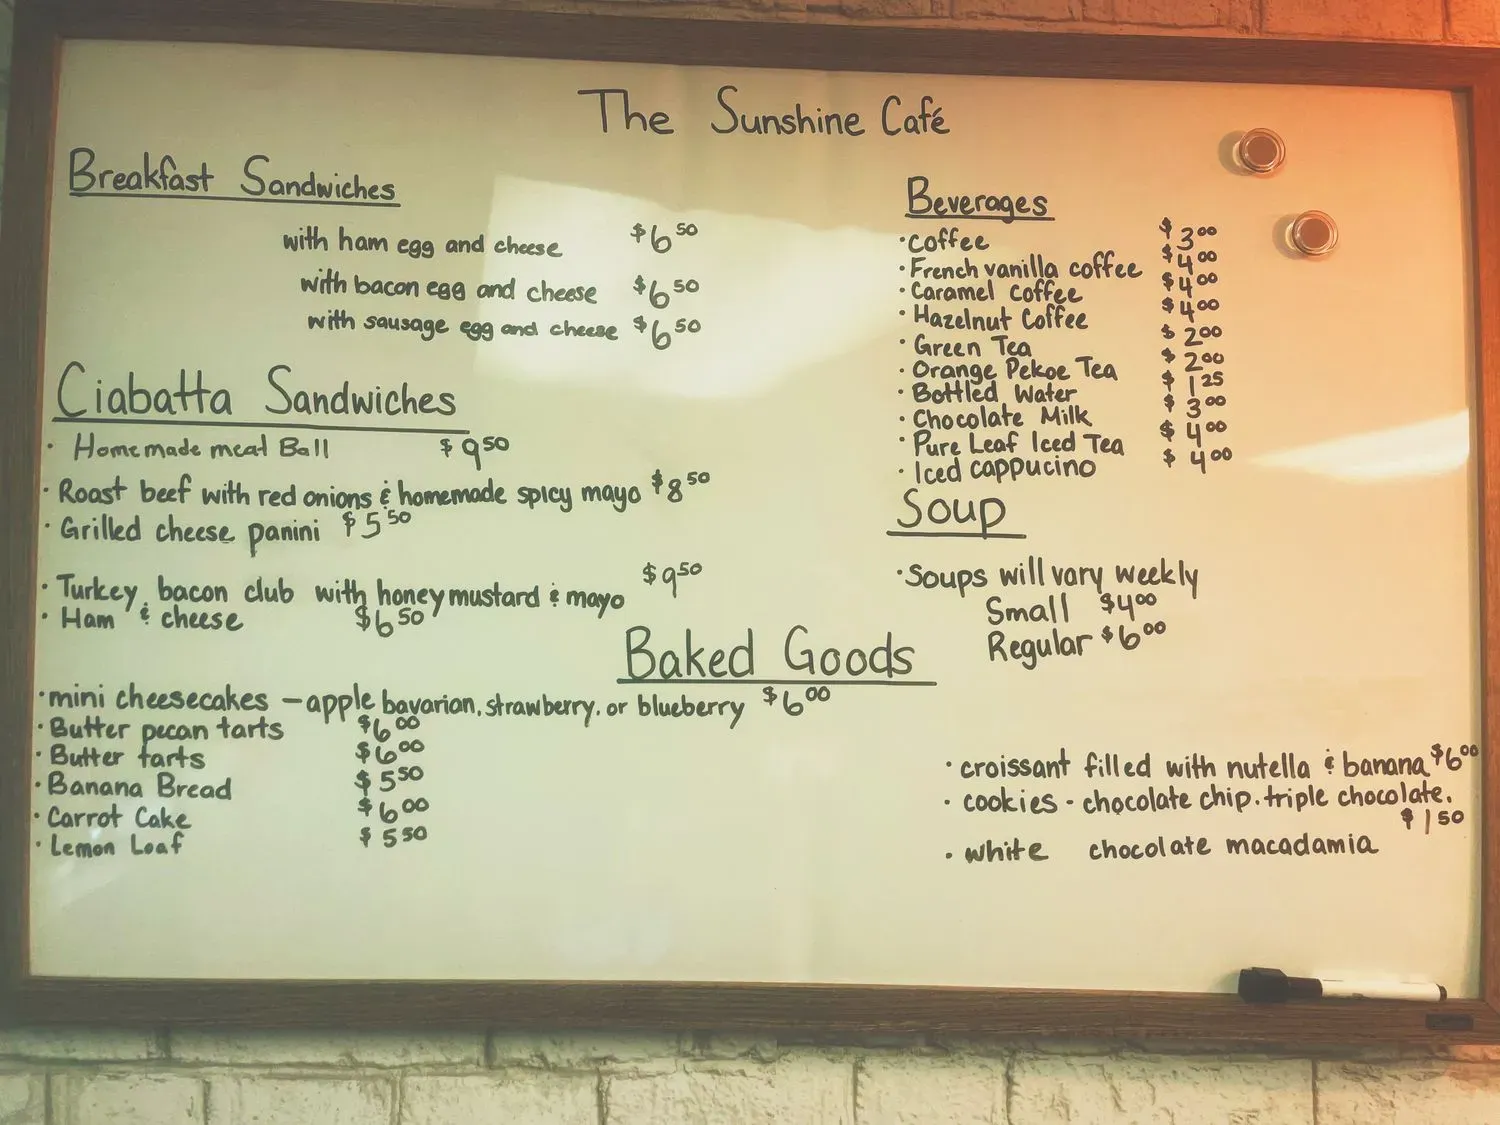 The Sunshine Café
Breakfast Sandwiches
with ham egg and cheese $6.50
with bacon egg and cheese $6.50
with sausage egg and cheese $6.50
Ciabatta Sandwiches
· Homemade meat Ball $9.50
· Roast beef with red onions & homemade spicy mayo $8.50
· Grilled cheese panini $5.50
· Turkey bacon club with honey mustard & mayo $9.50
· Ham & cheese $6.50
Beverages
· coffee $3.00
· French vanilla coffee $4.00
· Caramel Coffee $4.00
· Hazelnut Coffee $4.00
· Green Tea $2.00
· Orange Pekoe Tea $2.00
· Bottled Water $1.25
· Chocolate Milk $3.00
· Pure Leaf Iced Tea $4.00
· Iced cappucino $4.00
Soup
· Soups will vary weekly
Small $4.00
Regular $6.00
Baked Goods
· mini cheesecakes - apple bavarian, strawberry, or blueberry $6.00
· Butter pecan tarts $6.00
· Butter tarts $6.00
· Banana Bread $5.50
· Carrot Cake $6.00
· Lemon Loaf $5.50
· croissant filled with nutella & banana $6.00
· cookies - chocolate chip. triple chocolate.
$1.50
· white chocolate macadamia